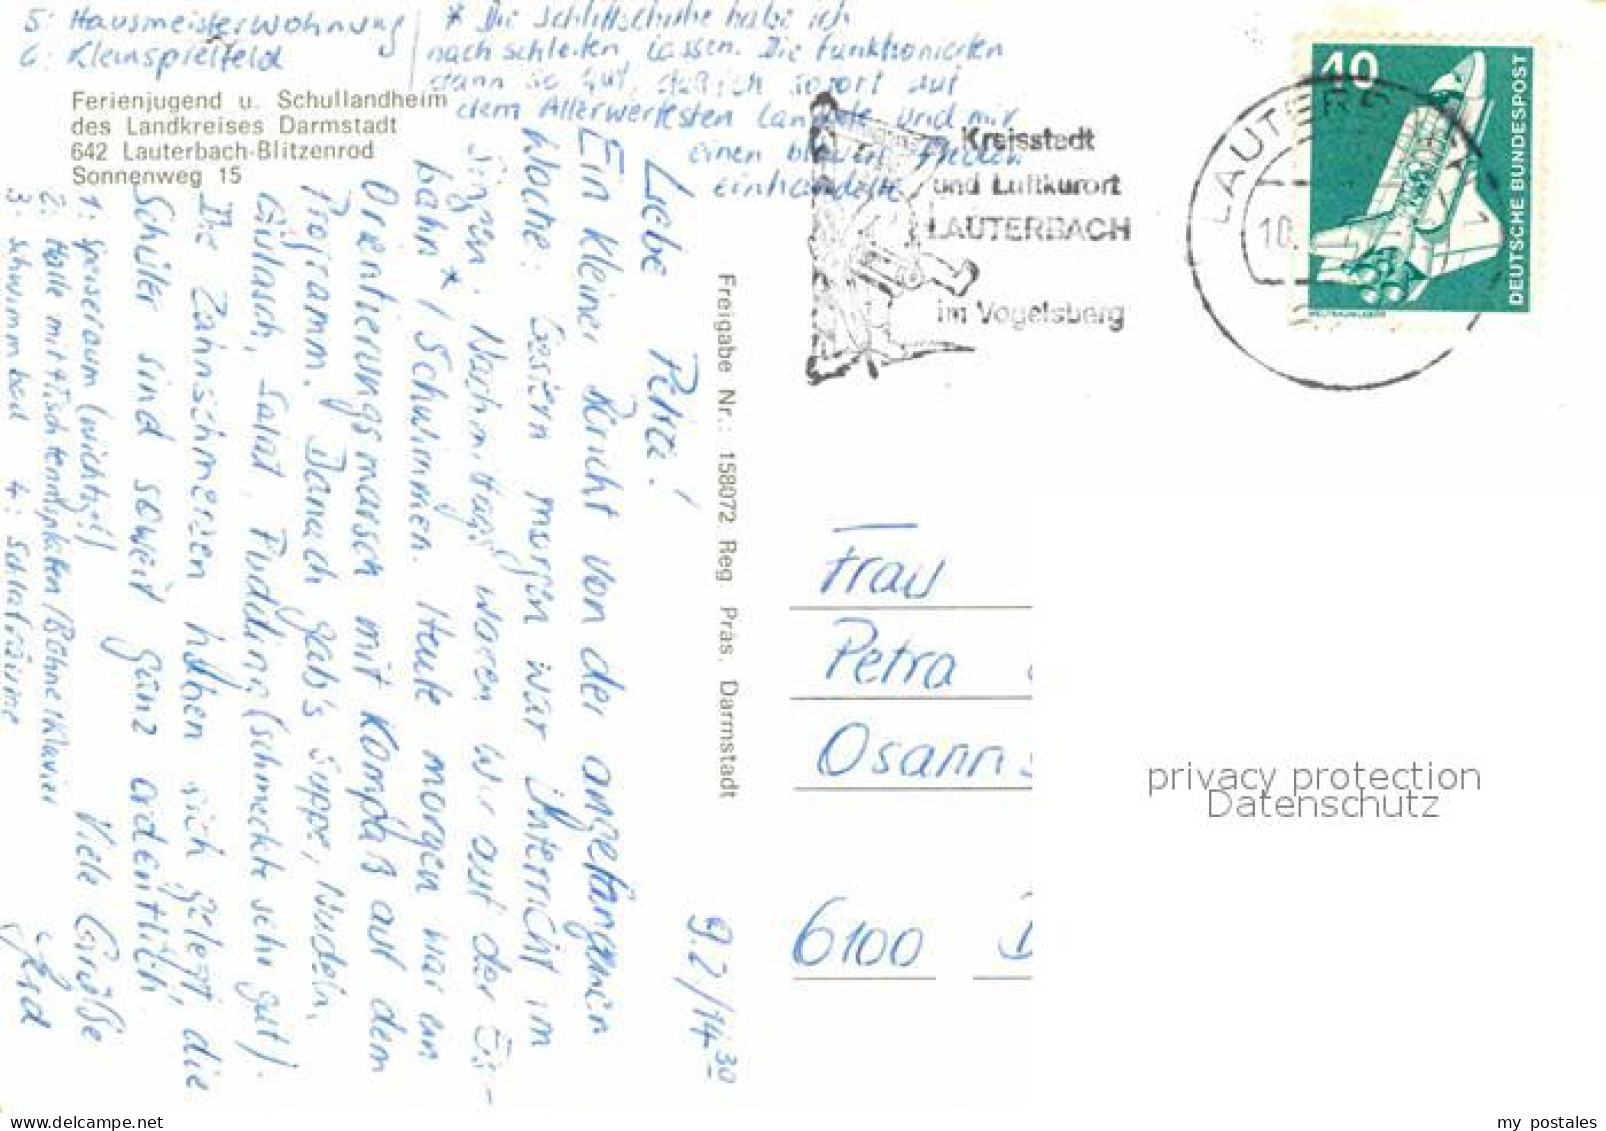 5: Hausmeisterwohnung
6: Kleinspielfeld
* Die Schlittschuhe habe ich
nach schleifen lassen. Die funktionierten
dann so gut, daß ich sofort auf
dem Allerwertesten landete und mir
einen blauen Flecken
einhandelte
Ferienjugend u. Schullandheim
des Landkreises Darmstadt
642 Lauterbach-Blitzenrod
Sonnenweg 15
9.2/14³⁰
Liebe Petra!
Ein kleiner Bericht von der angefangenen
Woche: Gestern morgen war Unterricht im
Singen. Nachmittags waren wir auf der Eis-
bahn*/Schwimmen. Heute morgen war ein
Orientierungsmarsch mit Kompaß auf dem
Programm. Danach gab's Suppe, Nudeln,
Gulasch, Salat, Pudding (schmeckte sehr gut).
Die Zahnschmerzen haben sich gelegt, die
Schüler sind soweit ganz ordentlich.
Viele Grüße
1: Speiseraum (wichtig!)
2: Halle mit Tischtennisplatten/Bühne/Klavier
3: Schwimmbad 4: Schlafräume
Freigabe Nr.: 158072 Reg. Präs. Darmstadt
Kreisstadt
und Luftkurort
LAUTERBACH
im Vogelsberg
LAUTERB
10.
40
DEUTSCHE BUNDESPOST
Frau
Petra
Osann
6100 D
privacy protection
Datenschutz
my postales